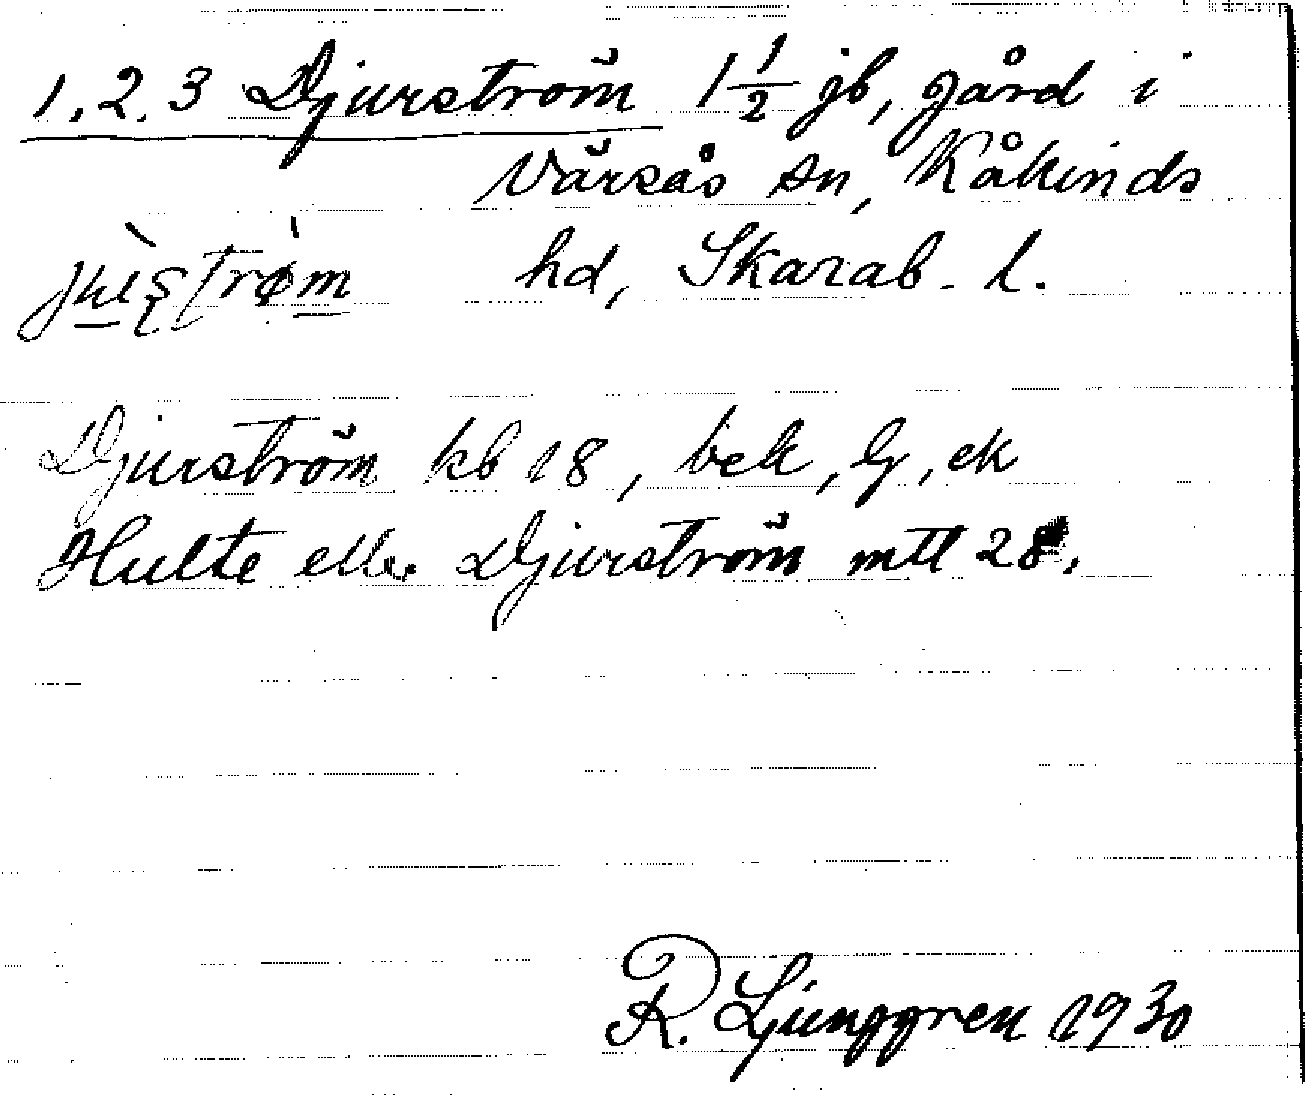 1, 2, 3 Djurström 1 1/2 jb, gård i
Värsås sn, Kåkinds
hd, Skarab. l.
Djurström kb 18, bek, G, ek
Hulte elle. Djurström mtl 28.
R. Ljunggren 1930